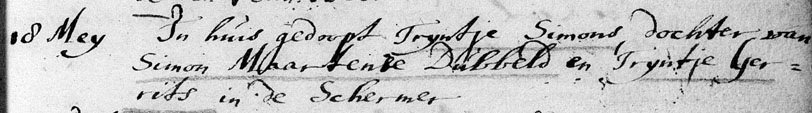 18 Mey In huis gedoopt Tryntje Simons, dochter van
Simon Maartensz Dubbeld en Tryntje Ger=
rits in de Schermer